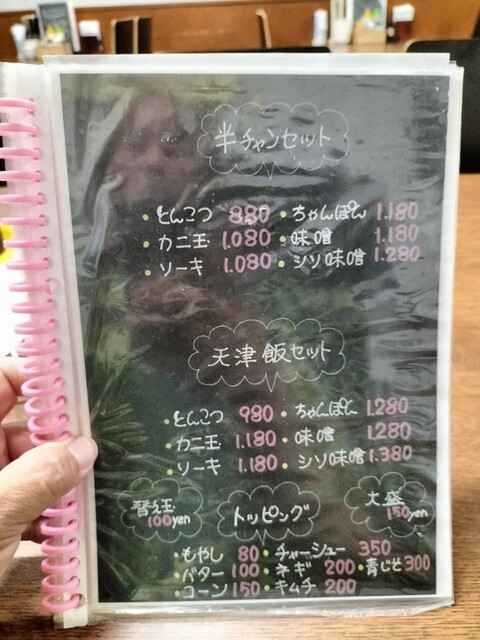 半チャンセット
・とんこつ 880 ・ちゃんぽん 1.180
・カニ玉 1.080 ・味噌 1.180
・ソーキ 1.080 ・シソ味噌 1.280
天津飯セット
・とんこつ 980 ・ちゃんぽん 1.280
・カニ玉 1.180 ・味噌 1.280
・ソーキ 1.180 ・シソ味噌 1.380
替え玉 100yen
トッピング
大盛 150yen
・もやし 80 ・チャーシュー 350
・バター 100 ・ネギ 200 ・青じそ 300
・コーン 150 ・キムチ 200